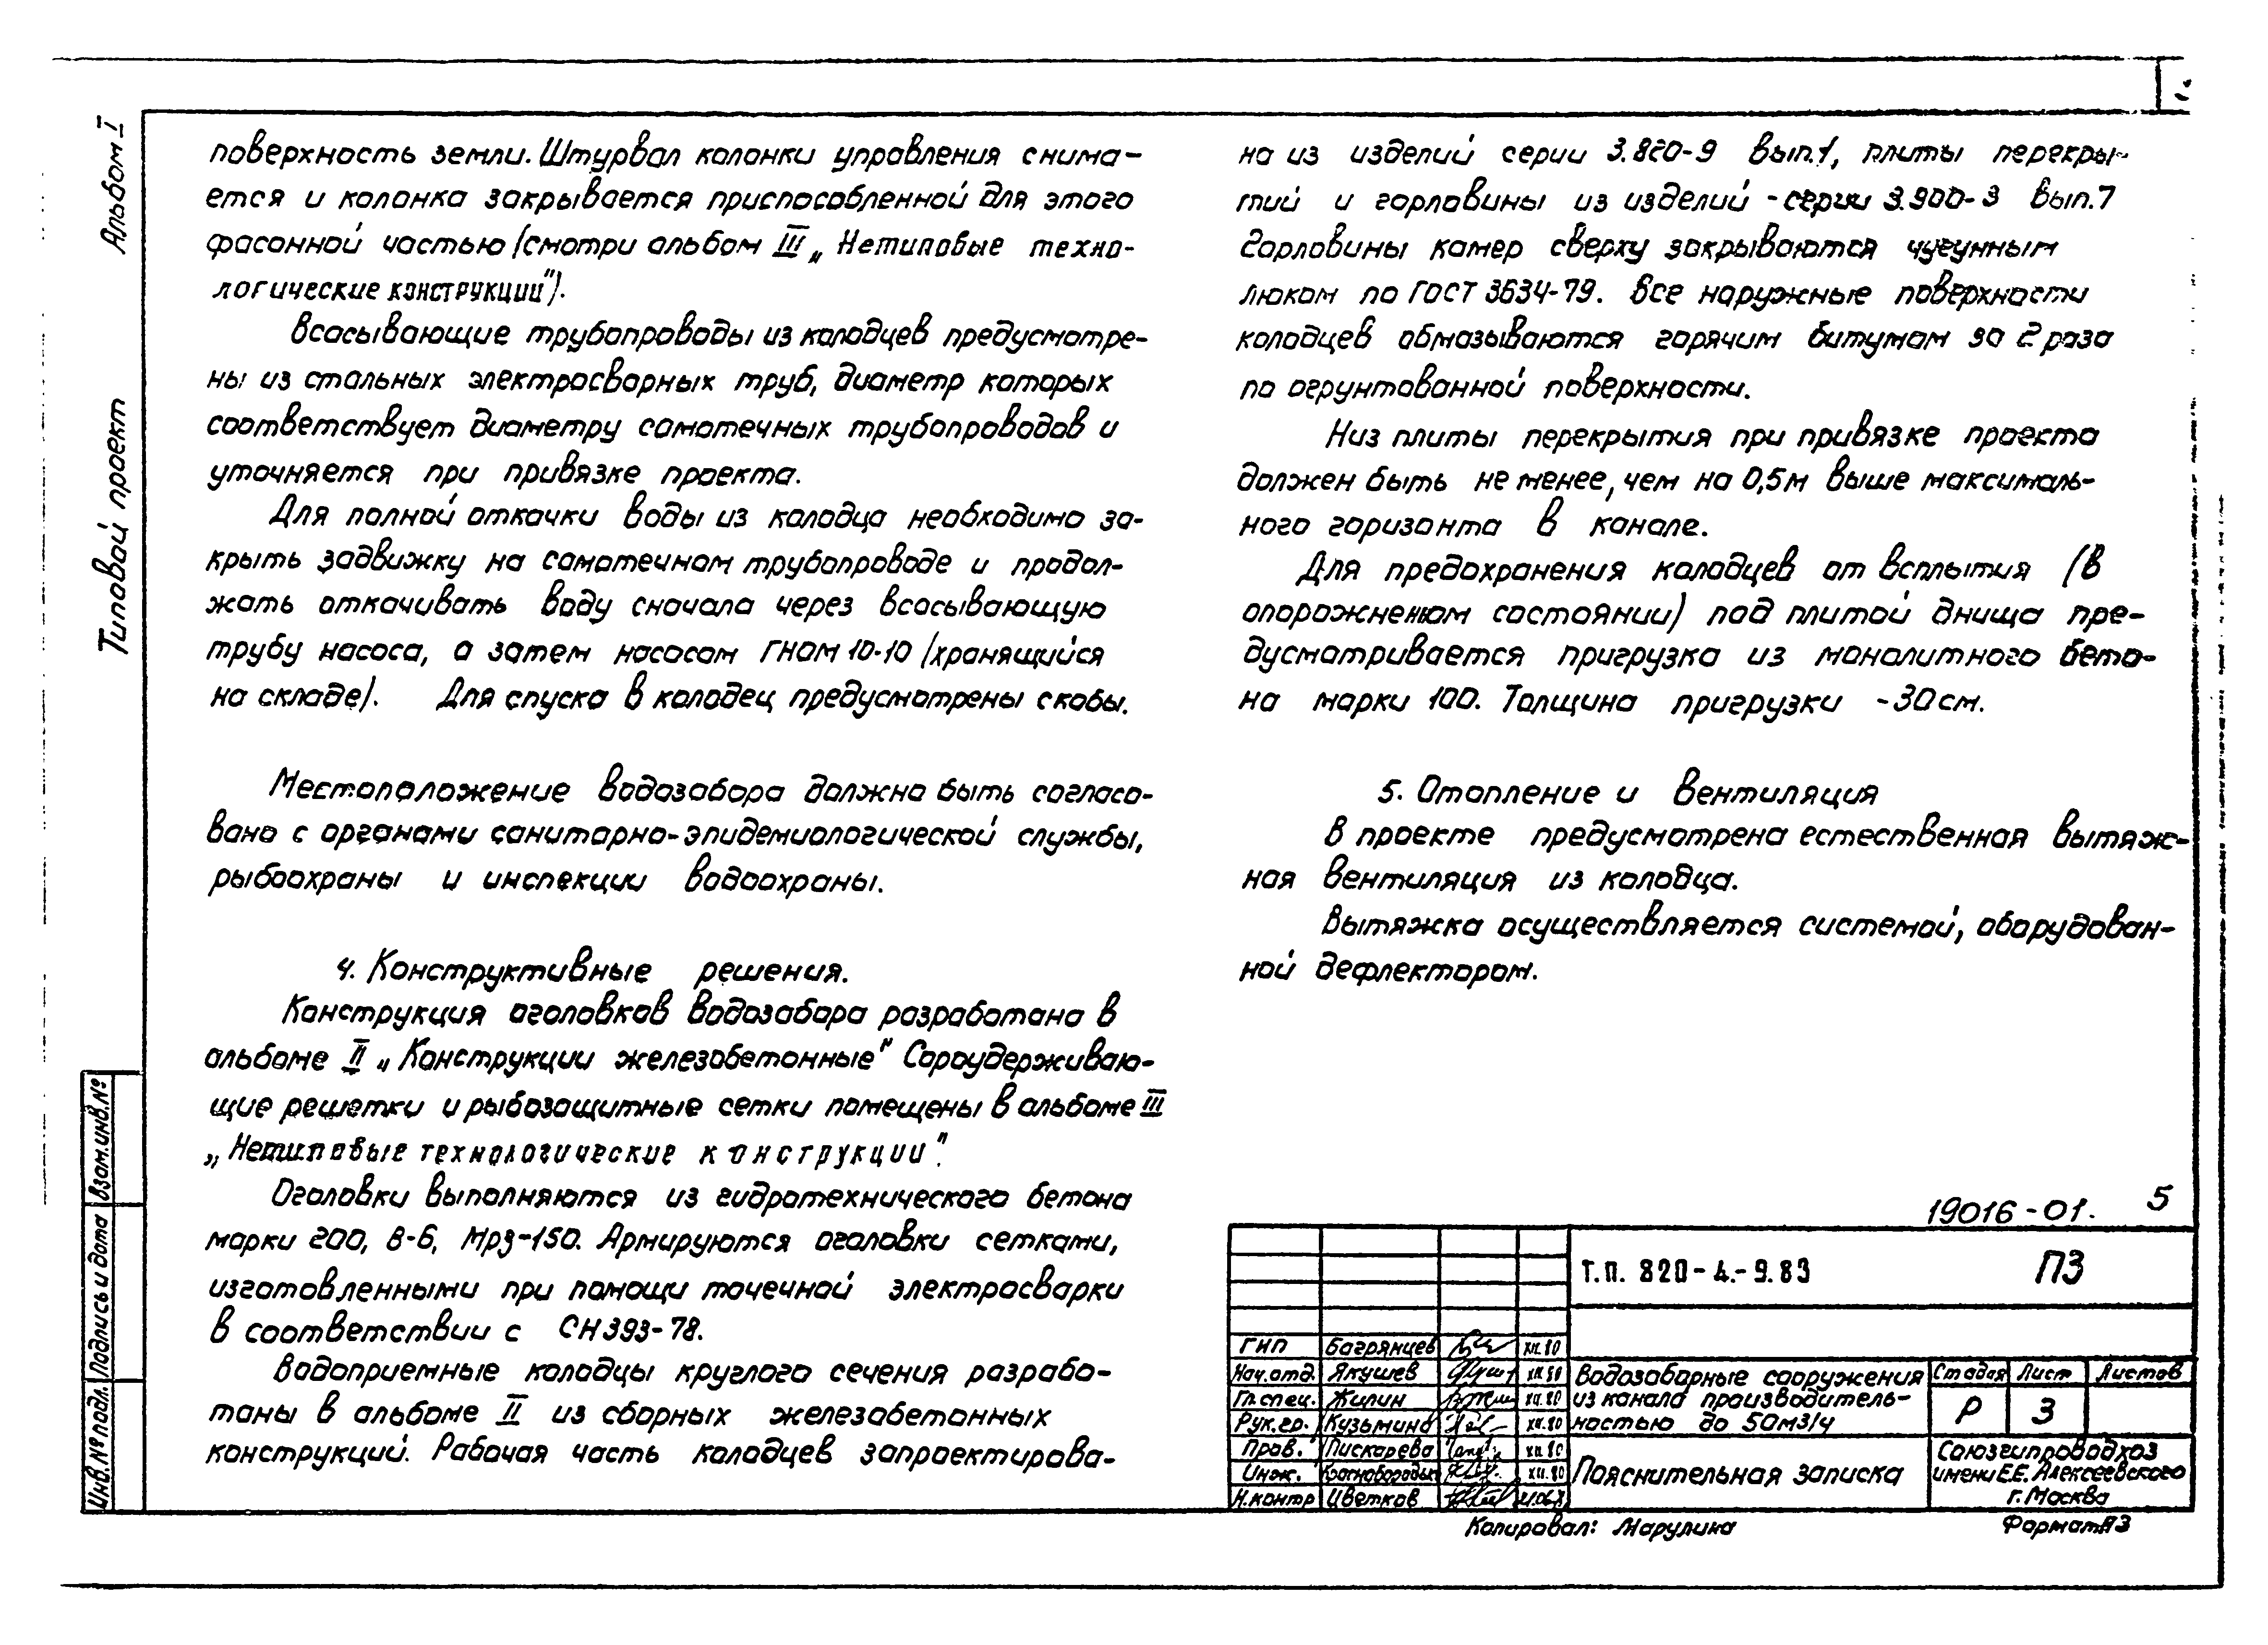 Альбом I
Типовой проект
поверхность земли. Штурвал колонки управления снима-
ется и колонка закрывается приспособленной для этого
фасонной частью (смотри альбом III „Нетиповые техно-
логические конструкции").
Всасывающие трубопроводы из колодцев предусмотре-
ны из стальных электросворных труб, диаметр которых
соответствует диаметру самотечных трубопроводов и
уточняется при привязке проекта.
Для полной откачки воды из колодца необходимо за-
крыть задвижку на самотечном трубопроводе и продол-
жать откачивать воду сначала через всасывающую
трубу насоса, а затем насосом ГНОМ 10-10 (хранящийся
на складе). Для спуска в колодец предусмотрены скобы.
Местоположение водозабора должно быть согласо-
вано с органами санитарно-эпидемиологической службы,
рыбоохраны и инспекции водоохраны.
4. Конструктивные решения.
Конструкция оголовков водозабора разработана в
альбоме II „Конструкции железобетонные" Сороудерживаю-
щие решетки и рыбозащитные сетки помещены в альбоме III
„Нетиповые технологические конструкции".
Оголовки выполняются из гидротехнического бетона
марки 200, В-6, Мрз-150. Армируются оголовки сетками,
изготовленными при помощи точечной электросварки
в соответствии с СН 393-78.
Водоприемные колодцы круглого сечения разрабо-
таны в альбоме II из сборных железобетонных
конструкций. Рабочая часть колодцев запроектирова-
на из изделий серии 3.820-9 Вып.1, плиты перекры-
тий и горловины из изделий - серии 3.900-3 Вып.7
Горловины камер сверху закрываются чугунным
люком по ГОСТ 3634-79. Все наружные поверхности
колодцев обмазываются горячим битумом за 2 раза
по огрунтованной поверхности.
Низ плиты перекрытия при привязке проекта
должен быть не менее, чем на 0,5м выше максималь-
ного горизонта в канале.
Для предохранения колодцев от всплытия (в
опорожненном состоянии) под плитой днища пре-
дусматривается пригрузка из монолитного бето-
на марки 100. Толщина пригрузки -30см.
5. Отопление и вентиляция
В проекте предусмотрена естественная вытяж-
ная вентиляция из колодца.
Вытяжка осуществляется системой, оборудован-
ной дефлектором.
19016-01. 5
Т.П. 820-4.-9.83 ПЗ
ГИП Багрянцев XII.80
Нач.отд. Якушев XII.80
Гл.спец. Жилин XII.80
Рук.гр. Кузьмина XII.80
Пров. Пискарева XII.80
Инж. XII.80
Н.контр Цветков
Водозаборные сооружения
из канала производитель-
ностью до 50м3/ч
Стадия Лист Листов
Р 3
Пояснительная записка
Союзгипроводхоз
имени Е.Е. Алексеевского
г. Москва
Копировал: Марулина Формат А3
Взам.инв.№
Подпись и дата
Инв.№ подл.